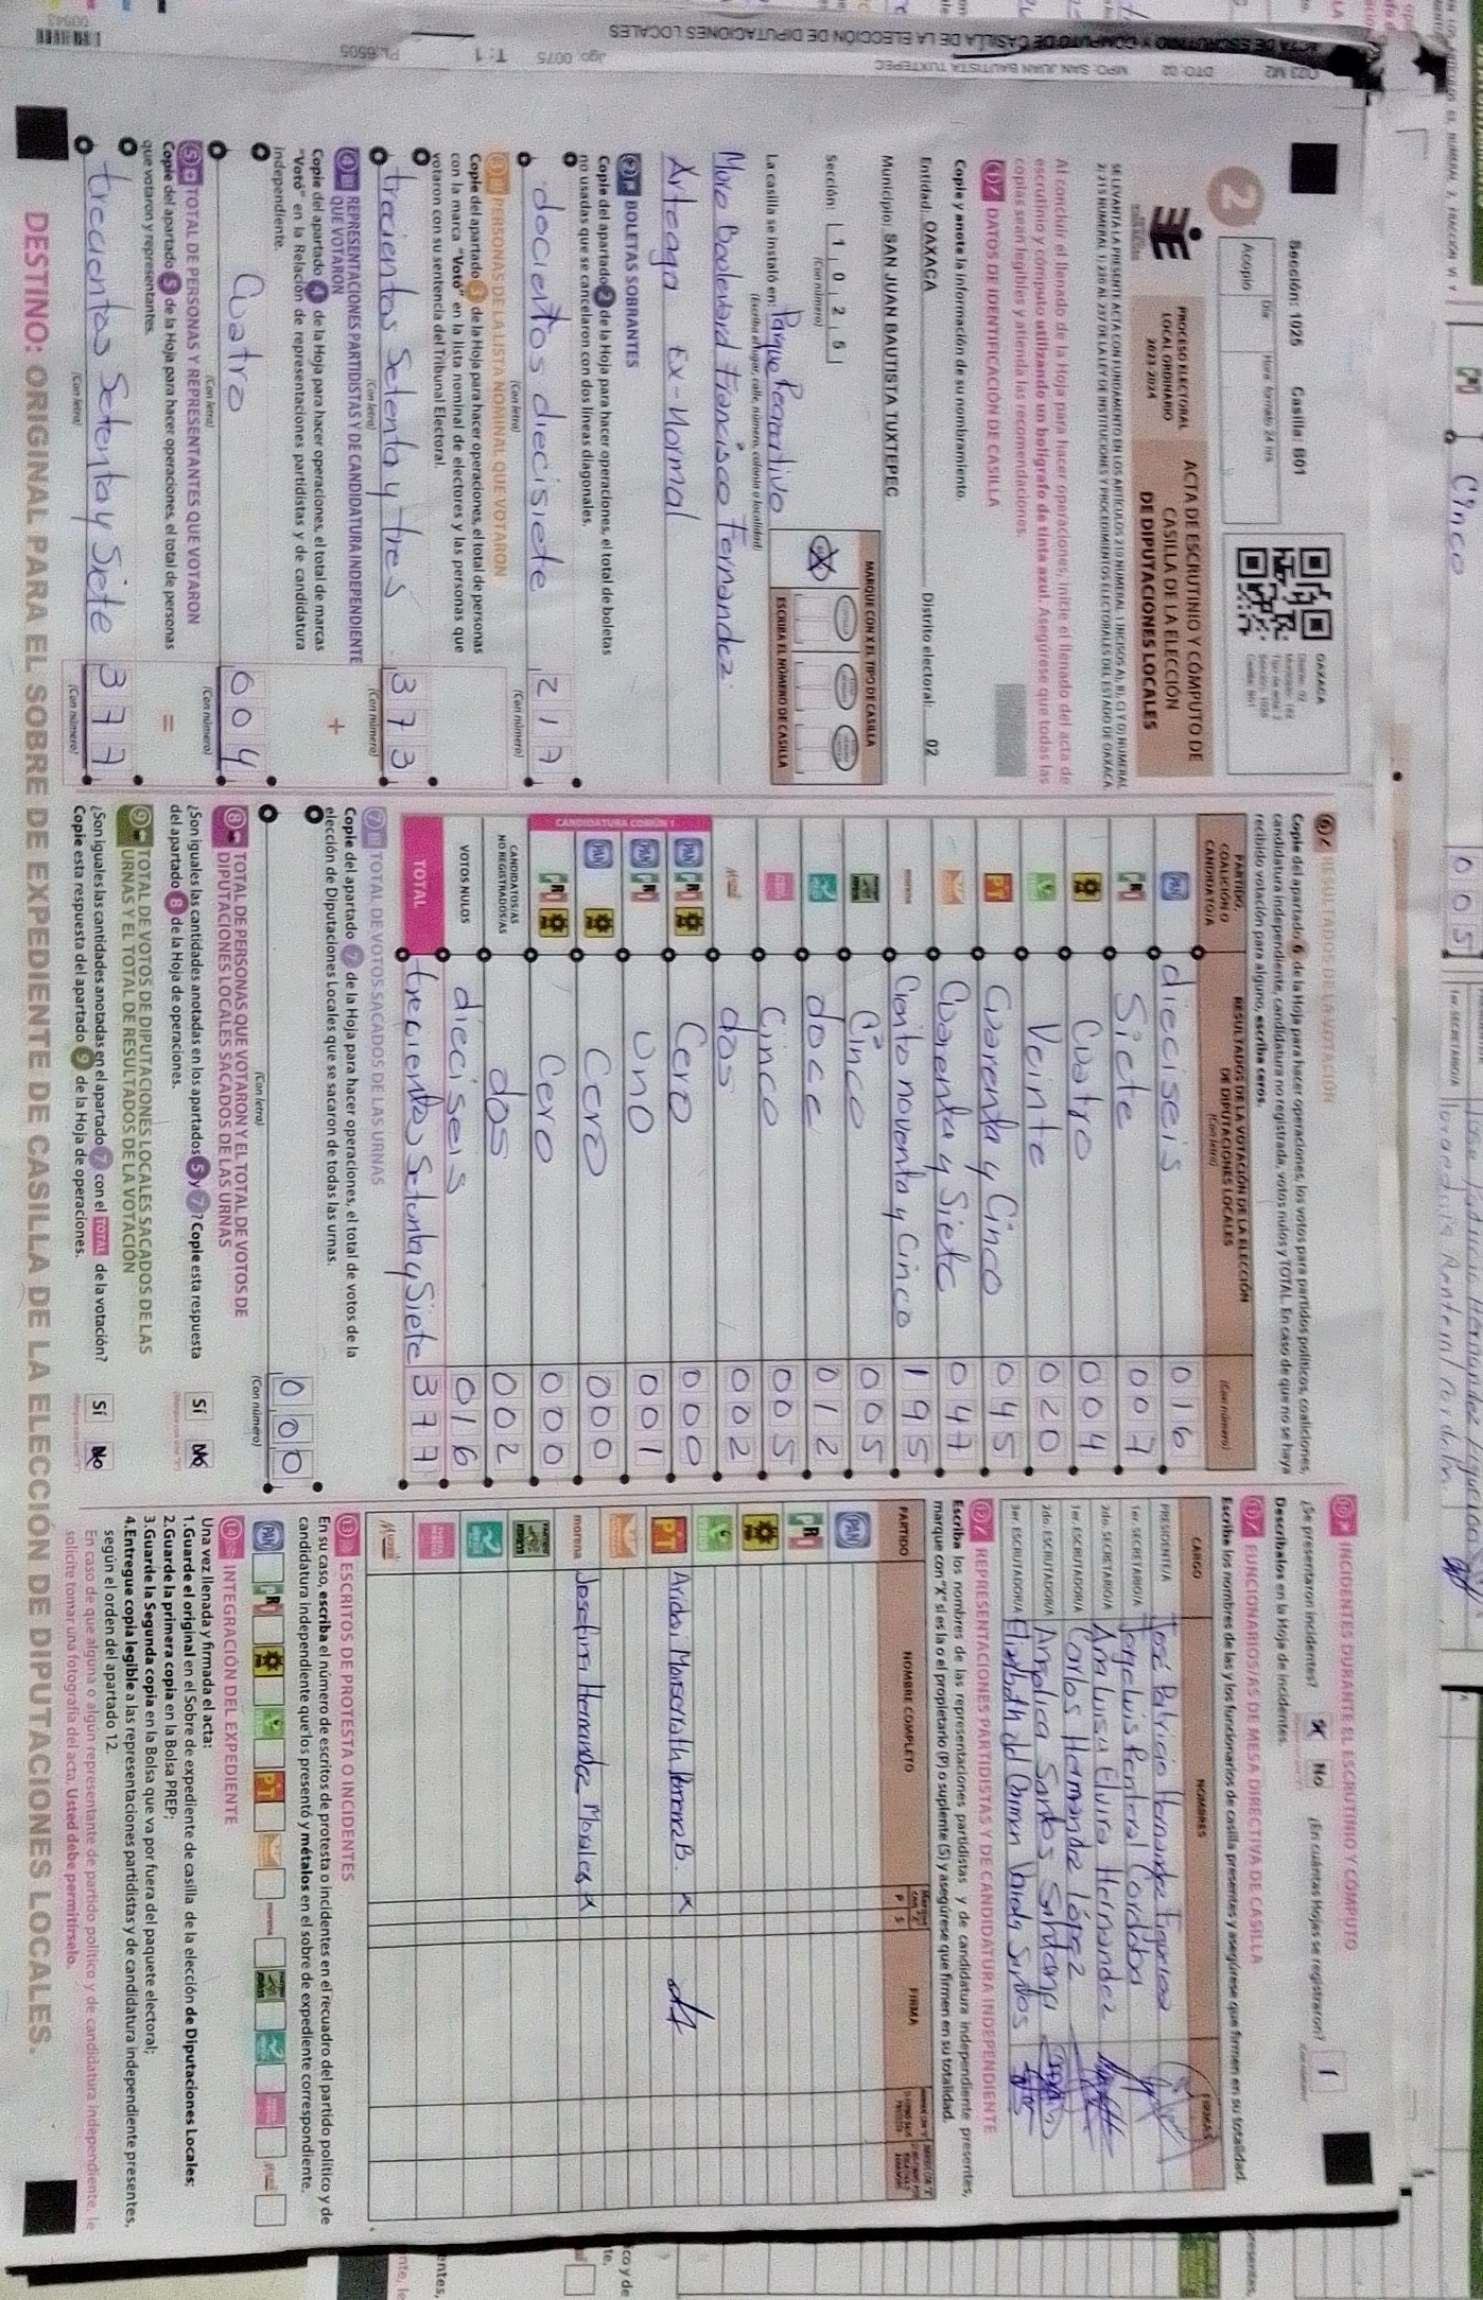 Sección: 1025 Casilla: B01
Acopio
Día
Hora formato 24 hrs
OAXACA
2
PROCESO ELECTORAL
LOCAL ORDINARIO
2023-2024
ACTA DE ESCRUTINIO Y CÓMPUTO DE
CASILLA DE LA ELECCIÓN
DE DIPUTACIONES LOCALES
Al concluir el llenado de la Hoja para hacer operaciones, inicie el llenado del acta de
escrutinio y cómputo utilizando un bolígrafo de tinta azul. Asegúrese que todas las
copias sean legibles y atienda las recomendaciones.
1 DATOS DE IDENTIFICACIÓN DE CASILLA
Copie y anote la información de su nombramiento.
Entidad: OAXACA Distrito electoral: 02
Municipio: SAN JUAN BAUTISTA TUXTEPEC
Sección: 1 0 2 5
(Con número)
MARQUE CON X EL TIPO DE CASILLA
ESCRIBA EL NÚMERO DE CASILLA
La casilla se instaló en: Parque Recreativo
(Escriba el lugar, calle, número, colonia o localidad)
Muro Boolevard Francisco Fernandez
Arteaga Ex-Normal
2 BOLETAS SOBRANTES
Copie del apartado 2 de la Hoja para hacer operaciones, el total de boletas
no usadas que se cancelaron con dos líneas diagonales.
docientos diecisiete 217
(Con letra) (Con número)
3 PERSONAS DE LA LISTA NOMINAL QUE VOTARON
Copie del apartado 3 de la Hoja para hacer operaciones, el total de personas
con la marca "Votó" en la lista nominal de electores y las personas que
votaron con su sentencia del Tribunal Electoral.
trecientos Setenta y tres 373
(Con letra) (Con número)
4 REPRESENTACIONES PARTIDISTAS Y DE CANDIDATURA INDEPENDIENTE
QUE VOTARON
Copie del apartado 4 de la Hoja para hacer operaciones, el total de marcas
"Votó" en la Relación de representaciones partidistas y de candidatura
independiente.
+
Cuatro 004
(Con letra) (Con número)
5 TOTAL DE PERSONAS Y REPRESENTANTES QUE VOTARON
Copie del apartado 5 de la Hoja para hacer operaciones, el total de personas
que votaron y representantes.
=
trecientos Setenta y Siete 377
(Con letra) (Con número)
6 RESULTADOS DE LA VOTACIÓN
Copie del apartado 6 de la Hoja para hacer operaciones, los votos para partidos políticos, coaliciones,
candidatura independiente, candidatura no registrada, votos nulos y TOTAL. En caso de que no se haya
recibido votación para alguno, escriba ceros.
PARTIDO,
COALICIÓN O
CANDIDATO/A
RESULTADOS DE LA VOTACIÓN DE LA ELECCIÓN
DE DIPUTACIONES LOCALES
(Con letra) (Con número)
PAN dieciseis 016
PRI Siete 007
Cuatro 004
Veinte 020
PT Cuarenta y Cinco 045
Cuarenta y Siete 047
morena Ciento noventa y Cinco 195
Cinco 005
doce 012
Cinco 005
dos 002
CANDIDATURA COMÚN 1
PAN PRI Cero 000
PAN PRI uno 001
PAN Cero 000
PRI Cero 000
CANDIDATOS/AS
NO REGISTRADOS/AS dos 002
VOTOS NULOS dieciseis 016
TOTAL trecientos Setenta y Siete 377
7 TOTAL DE VOTOS SACADOS DE LAS URNAS
Copie del apartado 7 de la Hoja para hacer operaciones, el total de votos de la
elección de Diputaciones Locales que se sacaron de todas las urnas.
000
(Con letra) (Con número)
8 TOTAL DE PERSONAS QUE VOTARON Y EL TOTAL DE VOTOS DE
DIPUTACIONES LOCALES SACADOS DE LAS URNAS
¿Son iguales las cantidades anotadas en los apartados 5 y 7? Copie esta respuesta
del apartado 8 de la Hoja de operaciones.
Sí No
9 TOTAL DE VOTOS DE DIPUTACIONES LOCALES SACADOS DE LAS
URNAS Y EL TOTAL DE RESULTADOS DE LA VOTACIÓN
¿Son iguales las cantidades anotadas en el apartado 7 con el TOTAL de la votación?
Copie esta respuesta del apartado 9 de la Hoja de operaciones.
Sí No
10 INCIDENTES DURANTE EL ESCRUTINIO Y CÓMPUTO
¿Se presentaron incidentes? Sí No ¿En cuántas Hojas se registraron? 1
Descríbalos en la Hoja de incidentes.
11 FUNCIONARIOS/AS DE MESA DIRECTIVA DE CASILLA
Escriba los nombres de las y los funcionarios de casilla presentes y asegúrese que firmen en su totalidad.
CARGO NOMBRES FIRMAS
PRESIDENTE/A José Patricio Hernandez Figueroa
1er. SECRETARIO/A Jorge Luis Renteral Cordoba
2do. SECRETARIO/A Ana Luisa Elvira Hernandez
1er. ESCRUTADOR/A Carlos Hernandez López
2do. ESCRUTADOR/A Angelica Santos Santana
3er. ESCRUTADOR/A Elizabeth del Carmen Varela Santos
12 REPRESENTACIONES PARTIDISTAS Y DE CANDIDATURA INDEPENDIENTE
Escriba los nombres de las representaciones partidistas y de candidatura independiente presentes,
marque con "X" si es la o el propietario (P) o suplente (S) y asegúrese que firmen en su totalidad.
PARTIDO NOMBRE COMPLETO P S FIRMA
PAN
PRI
PT Aridai Monserrath Herrera B. x
morena Josefina Hernandez Morales x
13 ESCRITOS DE PROTESTA O INCIDENTES
En su caso, escriba el número de escritos de protesta o incidentes en el recuadro del partido político y de
candidatura independiente que los presentó y métalos en el sobre de expediente correspondiente.
PAN PRI PT morena
14 INTEGRACIÓN DEL EXPEDIENTE
Una vez llenada y firmada el acta:
1.Guarde el original en el Sobre de expediente de casilla de la elección de Diputaciones Locales;
2.Guarde la primera copia en la Bolsa PREP;
3.Guarde la Segunda copia en la Bolsa que va por fuera del paquete electoral;
4.Entregue copia legible a las representaciones partidistas y de candidatura independiente presentes,
según el orden del apartado 12.
En caso de que alguna o algún representante de partido político y de candidatura independiente, le
solicite tomar una fotografía del acta. Usted debe permitírselo.
DESTINO: ORIGINAL PARA EL SOBRE DE EXPEDIENTE DE CASILLA DE LA ELECCIÓN DE DIPUTACIONES LOCALES.
ACTA DE ESCRUTINIO Y CÓMPUTO DE CASILLA DE LA ELECCIÓN DE DIPUTACIONES LOCALES
DTO: 02 MPO: SAN JUAN BAUTISTA TUXTEPEC
T: 1
Cinco 005